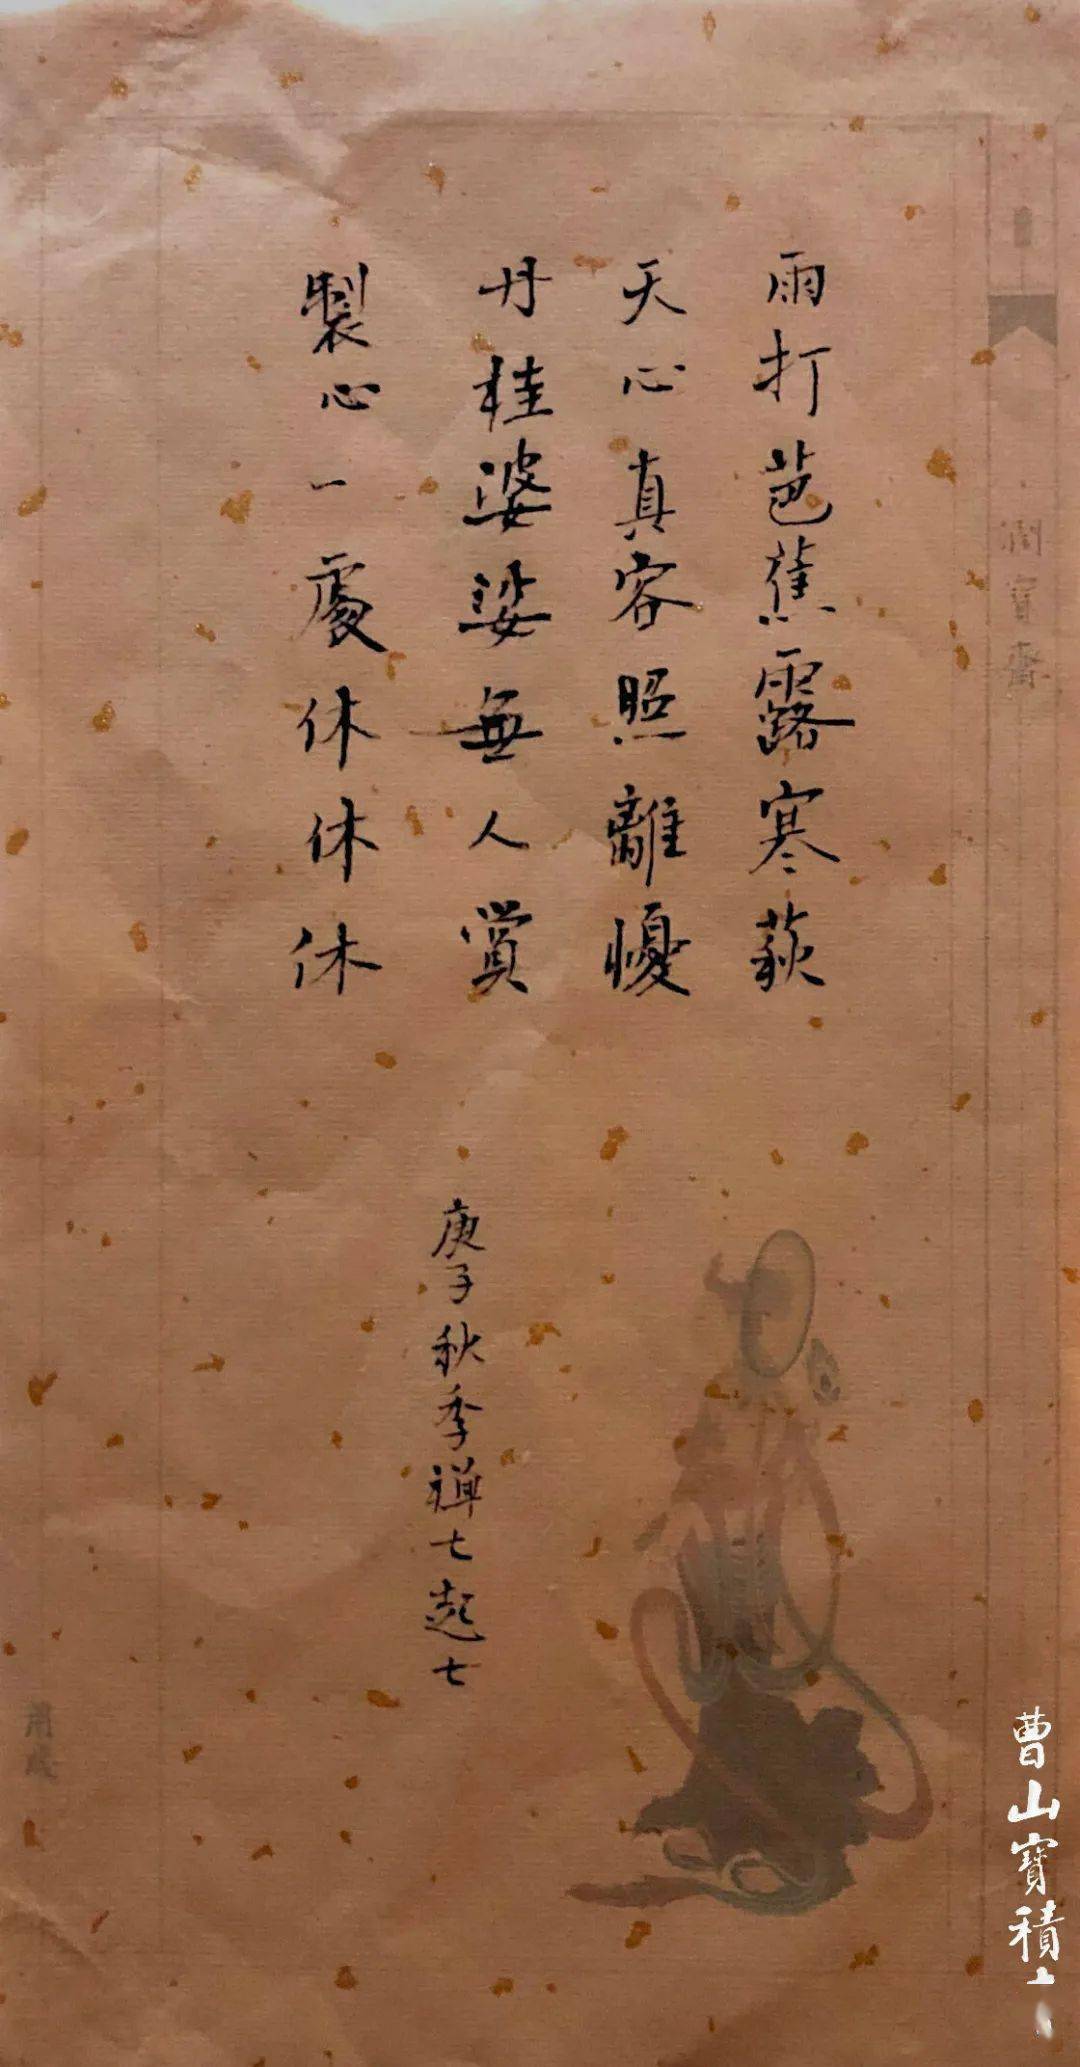 雨打芭蕉露寒荻
天心真容照離憂
丹桂婆娑無人賞
製心一處休休休
庚子秋季禪七起七
曹山寶積